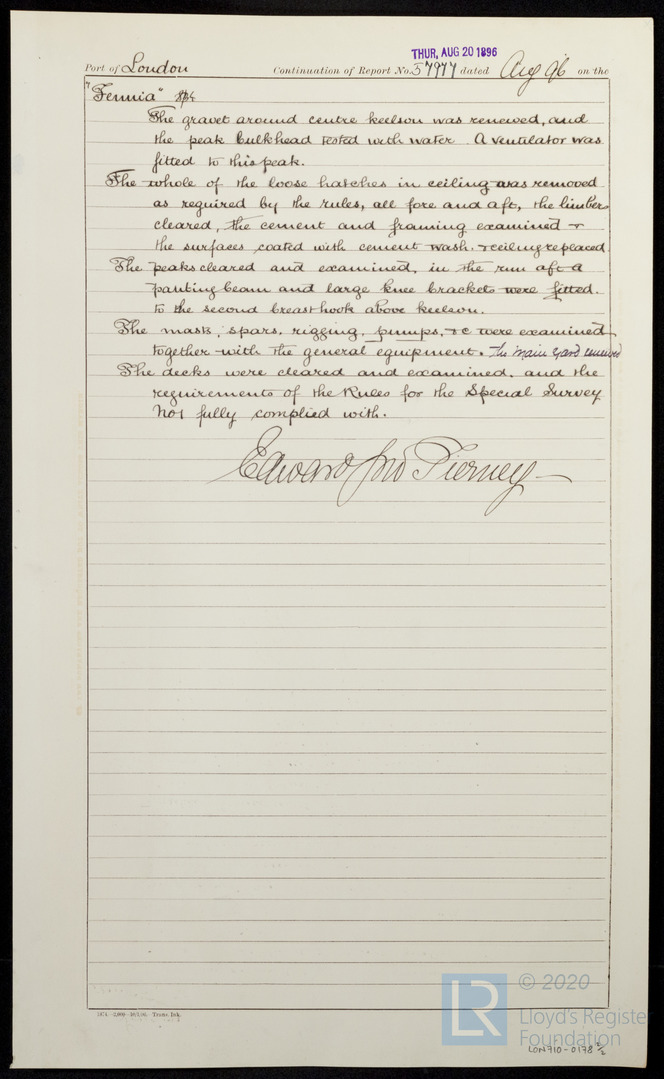 THUR, AUG 20 1896
Port of London Continuation of Report No. 57977 dated Aug 96 on the
"Fennia"
The gravet around centre keelson was renewed, and
the peak bulkhead tested with water. A ventilator was
fitted to this peak.
The whole of the loose hatches in ceiling was removed
as required by the rules, all fore and aft, the limbers
cleared, the cement and framing examined &
the surfaces coated with cement wash. & ceiling replaced
The peaks cleared and examined, in the run aft a
panting beam and large knee brackets were fitted.
to the second breasthook above keelson.
The masts, spars, rigging, pumps, &c were examined
together with the general equipment. The main yard renewed
The decks were cleared and examined. and the
requirements of the Rules for the Special Survey
Not fully complied with.
Edward Jno Tierney
© 2020
LR
Lloyd's Register
Foundation
LON710-0178 2/2